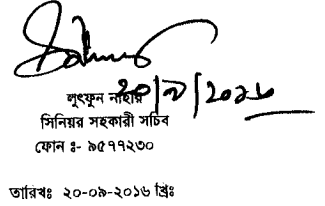 ২০/৯/২০১৬
লুৎফুন নাহার
সিনিয়র সহকারী সচিব
ফোন ঃ- ৯৫৭৭২৩০
তারিখঃ ২০-০৯-২০১৬ খ্রিঃ